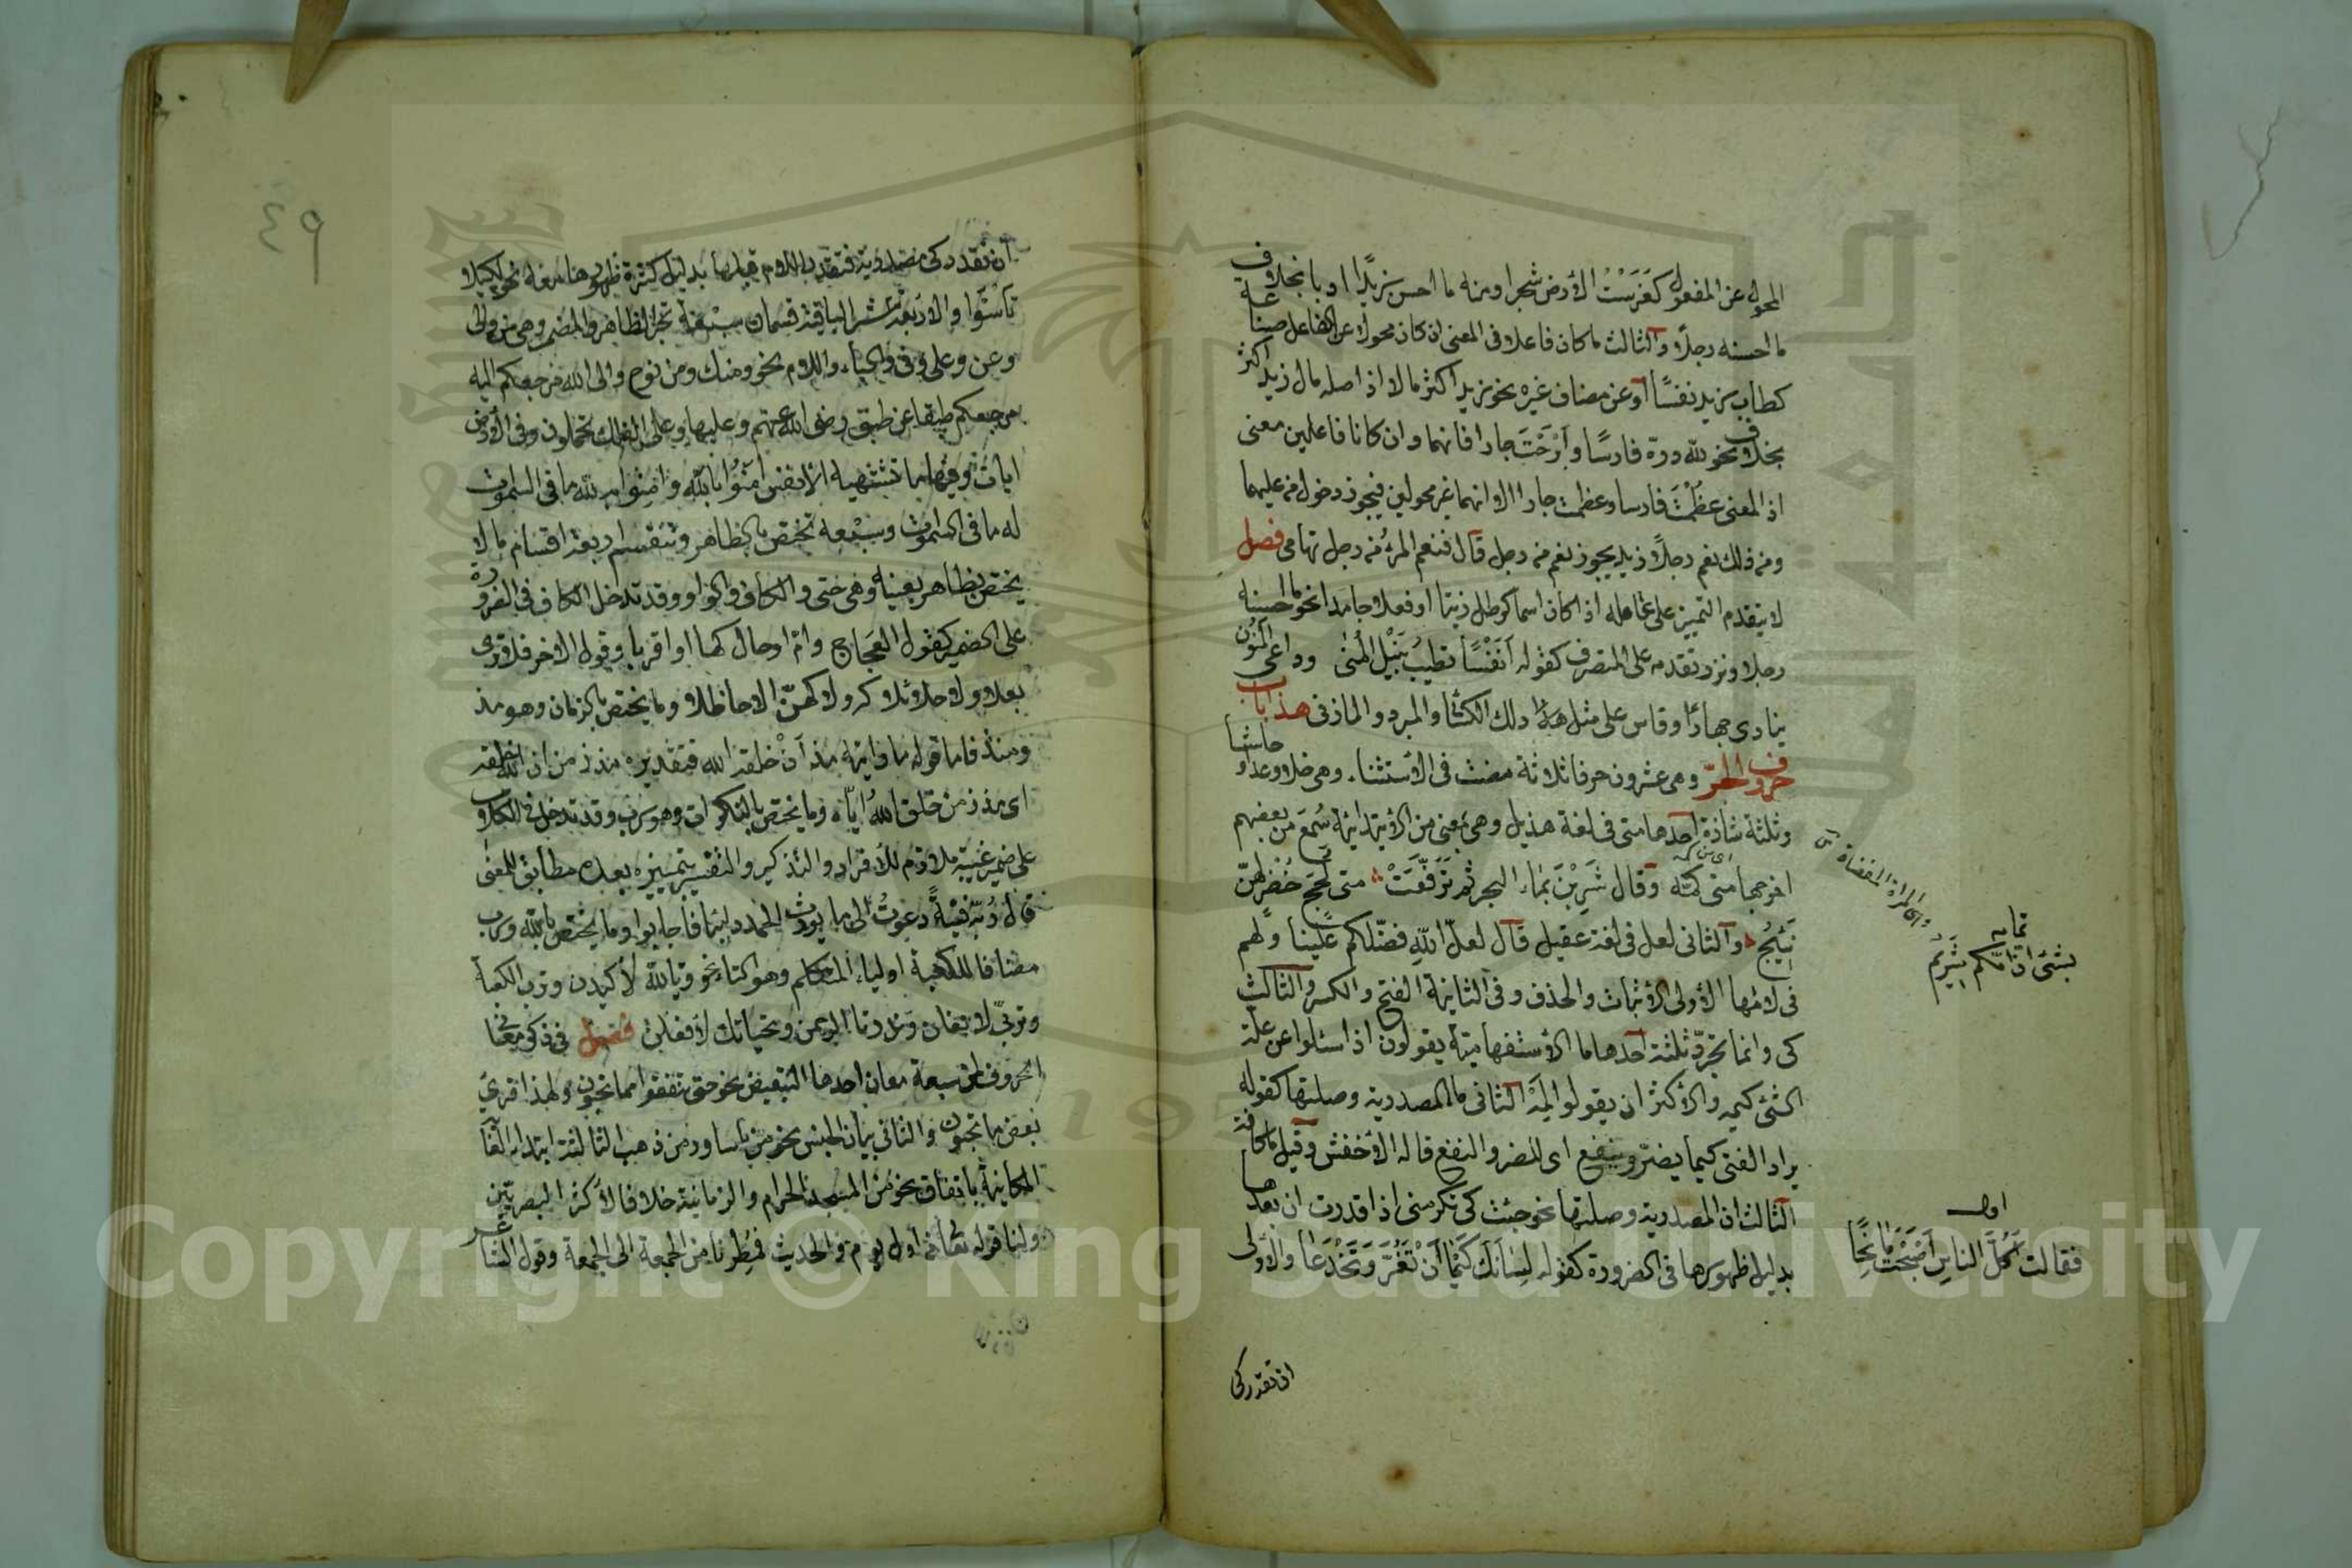 المحول عن المفعول كغَرَسْتُ الأرض شجرا ومنه ما احسن زيدًا اوبا بخلاف
ما احسنه رجلًا والثالث ما كان فاعلا فى المعنى ان كان محولا عن الفاعل صناعة
كطاب زيد نفسًا أو عن مضاف غيره نحو زيد اكثر مالا اذ اصله مال زيد اكثر
بخلاف نحو لله درّه فارسًا وأبْرَحْتَ جارا فانهما وان كانا فاعلين معنى
اذ المعنى عظُمْتَ فارسا وعظمت جارا الا انهما غير محولين فيجوز دخول من عليهما
ومن ذلك نعم رجلًا زيد يجوز نعم من رجل قال فنعم المرءُ من رجل تهامى فصل
لا يتقدم التمييز على عامله اذا كان اسما كرطل زيتا او فعلا جامدا نحو ما احسنه
رجلا وندر تقدمه على المتصرف كقوله أنَفْسًا تطيبُ بنَيْل المُنى وداعى المَنُون
ينادى جهارًا وقاس على مثل هذا ذلك الكسائى والمبرد والمازنى هذا باب
حروف الجرّ وهى عشرون حرفا ثلاثة مضت فى الأستثناء وهى خلا وعدا وحاشا
وثلثة شاذة أحدها متى فى لغة هذيل وهى بمعنى من الأبتدائية سُمِعَ من بعضهم
اخرجها متى كمّه وقال شَرِبْنَ بماء البحر ثم تَرَفَّعَتْ متى لُجَجٍ خُضرٍ لهنّ
نَئِيْجُ والثانى لعل فى لغة عقيل قال لعلّ اللّهِ فضّلكم علينا ولهم
فى لامها الأولى الأثبات والحذف وفى الثانية الفتح والكسر والثالث
كى وانما تجرّ ثلثة أحدها ما الأستفهامية يقولون اذا سئلوا عن علّة
الشئ كيمه والأكثر ان يقولوا لِمَهْ الثانى ما المصدرية وصلتها كقوله
يراد الفتى كيما يضرّ وينفع اى للضر والنفع قاله الأخفش وقيل ما كافة
الثالث ان المصدرية وصلتها نحو جئت كى تكرمنى اذا قدرت ان بعدها
بدليل ظهورها فى الضرورة كقوله لِسَانَكَ كَيْمَا أنْ تَغُرَّ وتَخْدَعَا والأولى
ان تقدر كى
تمامه
بشئ ان امّكم شَرِيمُ
اى المراة المفضاة
اى من كمه
اوله
فقالت أكلَّ الناسِ أصْبَحْتَ مانحًا
٤٩
أن تقدر كى مصدرية فتقدر اللام قبلها بدليل كثرة ظهورها معه نحو لكيلا
تأسَوا والأربعة عشر الباقية قسمان سبْعة تجرّ الظاهر والمضمر وهى من والى
وعن وعلى وفى والباء واللام نحو ومنك ومن نوح والى الله مرجعكم اليه
مرجعكم طبقا عن طبق رضى الله عنهم وعليها وعلى الفلك تحملون وفى الأرض
ايات وفيها ما تشتهيه الأنفس آمنُوا بالله وآمِنُوا به لله ما فى السموت
له ما فى السموت وسبْعه تختص بالظاهر وتنقسم اربعة اقسام ما لا
يختص بظاهر بعينه وهى حتى والكاف والواو وقد تدخل الكاف فى الضرورة
على الضمير كقول العَجاج وامّ اوعال كها او اقربا وقول الاخر فلا ترى
بعلا ولا حلائلا كه ولا كهنّ الا حاظلا وما يختص بالزمان وهو مذ
ومنذ فاما قولهم ما رايته مذ أنْ خلقه الله فتقديره مذ زمن ان الله خلقه
اى مذ زمن خلق اللهُ ايّاه وما يختص بالنكرات وهو رب وقد تدخل فى الكلام
على ضمير غيبة ملازم للأفراد والتذكير والتفسير بتمييز بعده مطابق للمعنى
قال رُبّه فِتيَةً دعوتُ الى ما يورث الحمد دايبا فأجابوا وما يختص بالله ورب
مضافا للكعبة او لياء المتكلم وهو التاء نحو وتاللّه لأكيدن وترب الكعبة
وتربّى لافعلن وندر تالرحمن وتحياتك لأفعلن فصل فى ذكر معانى
الحروف لمن سبعة معان احدها التبعيض نحو حتى تنفقوا مما تحبون ولهذا قرئ
بعض ما تحبون والثانى بيان الجنس نحو من اساور من ذهب الثالث ابتداء الغاية
المكانية باتفاق نحو من المسجد الحرام والزمانية خلافا لأكثر البصريين
ولنا قوله تعالى من اول يوم والحديث فمُطِرنا من الجمعة الى الجمعة وقول الشاعر